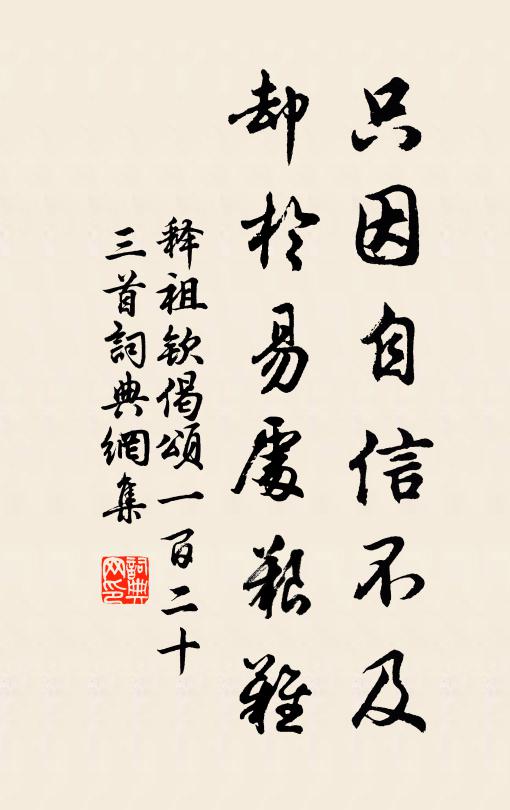 只因自信不及
却於易處艱難
释祖钦偈頌一百二十
三首詞典網集
詞典
网印